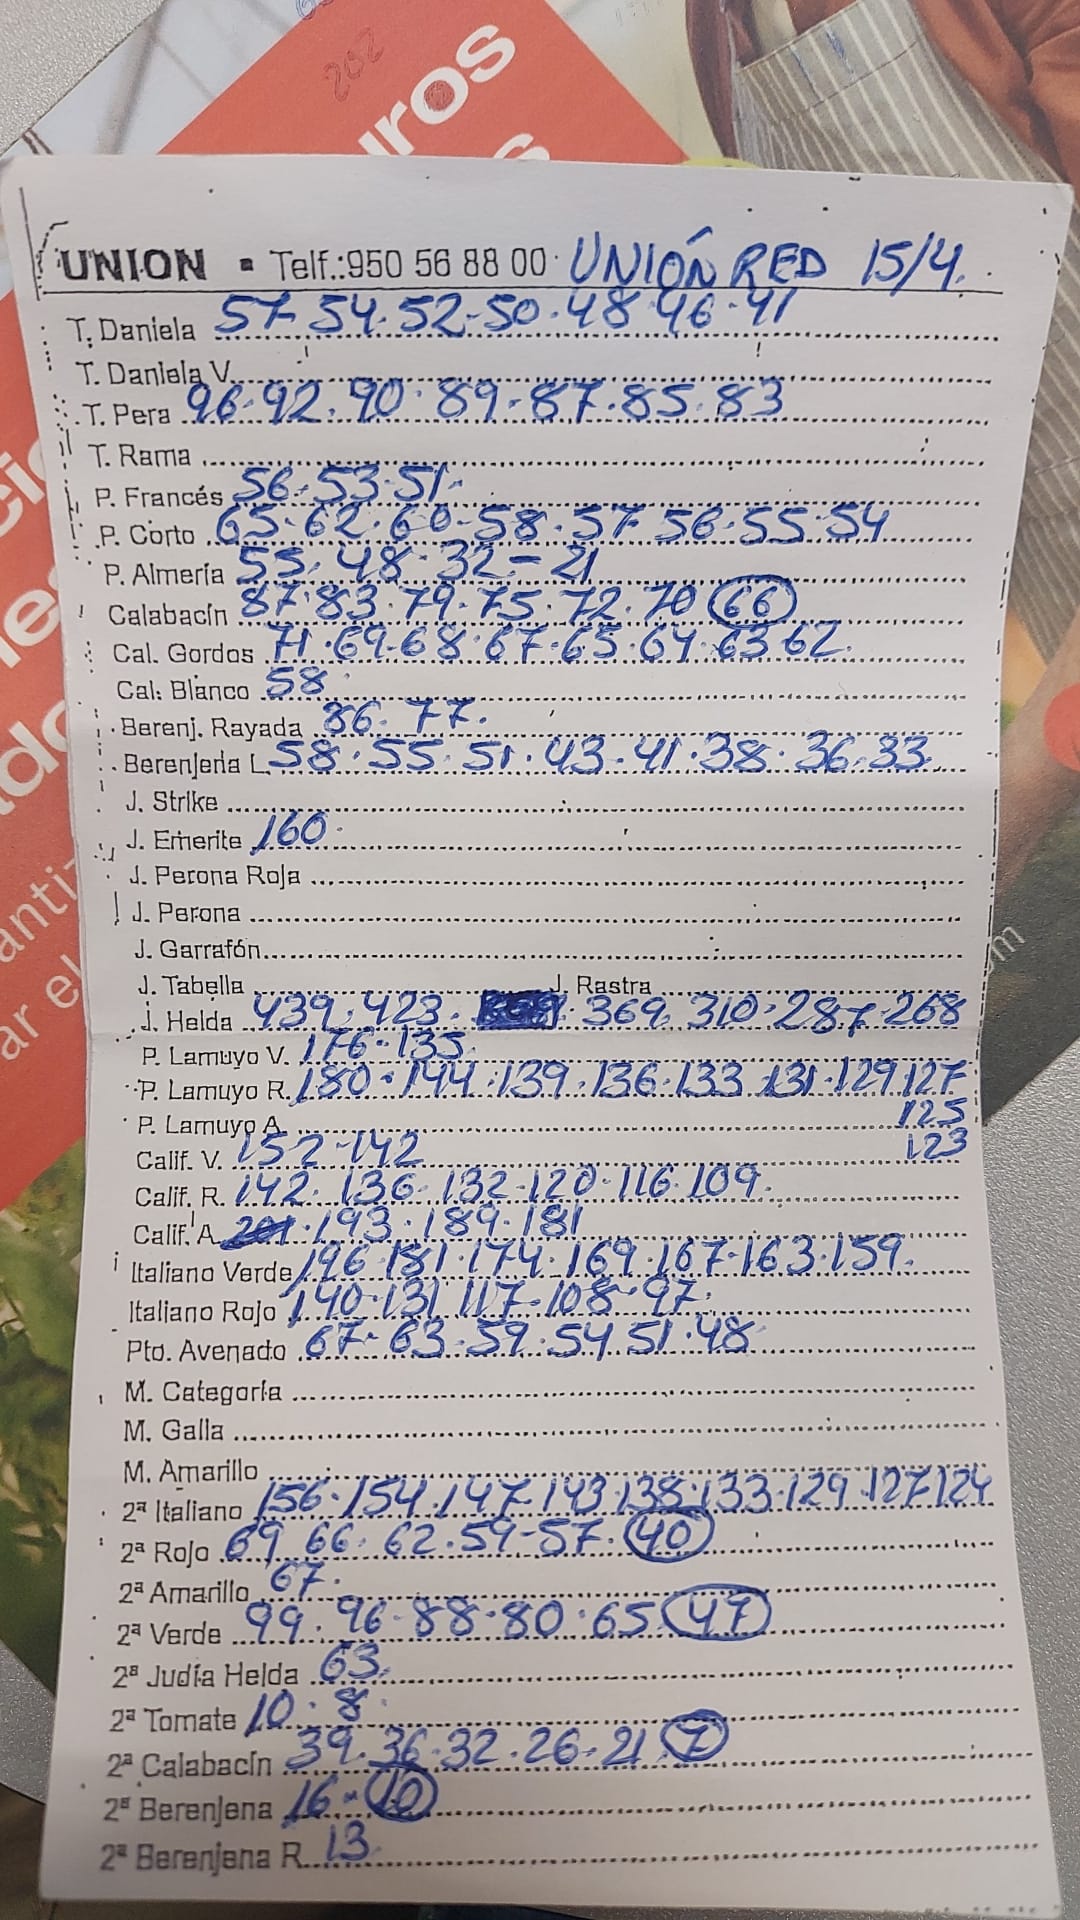 202
uros
s
UNION ▪ Telf.:950 56 88 00 UNIÓN RED 15/4.
T. Daniela 57-54-52-50-48-46-41
T. Daniela V.
T. Pera 96-92-90-89-87-85-83
T. Rama
P. Francés 56-53-51-
P. Corto 65-62-60-58-57-56-55-54
P. Almería 55-48-32-21
Calabacín 87-83-79-75-72-70 66
Cal. Gordos 71-69-68-67-65-64-63 62
Cal. Blanco 58
Berenj. Rayada 86-77.
Berenjena L. 58-55-51-43-41-38-36-33
J. Strike
J. Emerite 160
J. Perona Roja
J. Perona
J. Garrafón
J. Tabella J. Rastra
J. Helda 439-423-369-310-287-268
P. Lamuyo V. 176-135
P. Lamuyo R. 180-144-139-136-133-131-129 127
P. Lamuyo A. 125
Calif. V. 152-142 123
Calif. R. 142-136-132-120-116-109.
Calif. A 201-193-189-181
Italiano Verde 196-181-174-169-167-163-159.
Italiano Rojo 140-131-117-108-97
Pto. Avenado 67-63-59-54-51-48
M. Categoría
M. Galla
M. Amarillo
2ª Italiano 156-154-147-143-138-133-129-127 124
2ª Rojo 69-66-62-59-57-40
2ª Amarillo 67
2ª Verde 99-96-88-80-65 47
2ª Judía Helda 63
2ª Tomate 10-8
2ª Calabacín 39-36-32-26-21 7
2ª Berenjena 16-10
2ª Berenjena R. 13